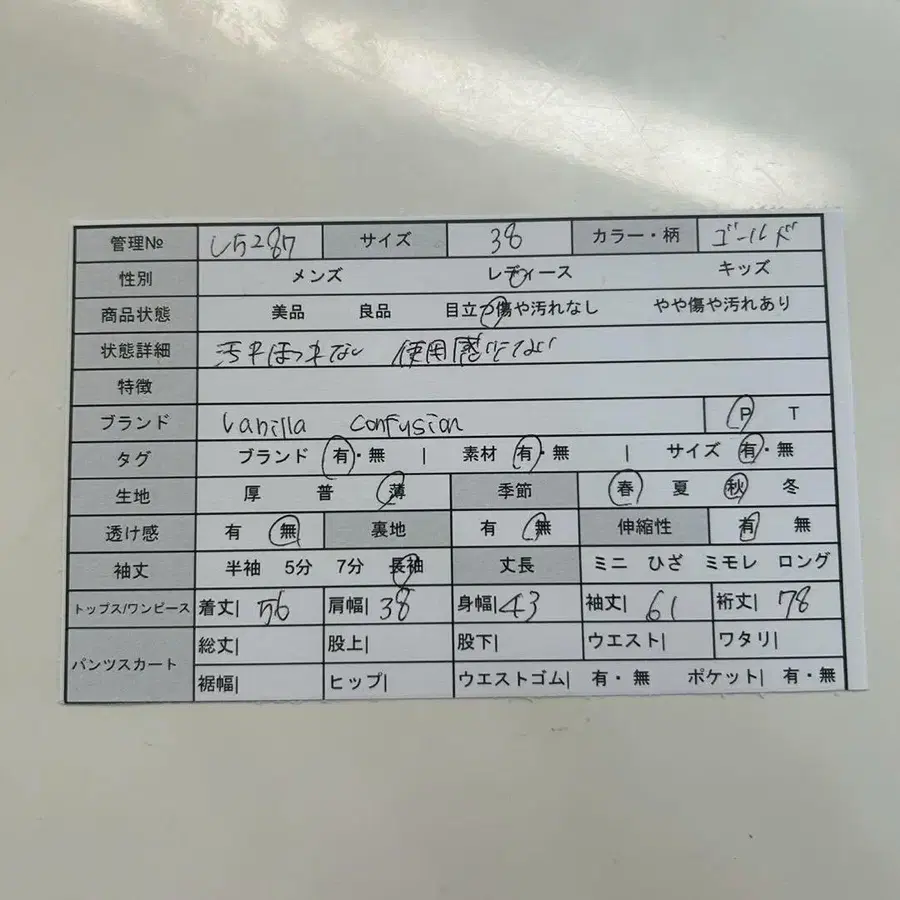 管理№ L5287 サイズ 38 カラー・柄 ゴールド
性別 メンズ レディース キッズ
商品状態 美品 良品 目立つ傷や汚れなし やや傷や汚れあり
状態詳細 汚れほつれない 使用感ない
特徴
ブランド Vanilla confusion P T
タグ ブランド 有・無 | 素材 有・無 | サイズ 有・無
生地 厚 普 薄 季節 春 夏 秋 冬
透け感 有 無 裏地 有 無 伸縮性 有 無
袖丈 半袖 5分 7分 長袖 丈長 ミニ ひざ ミモレ ロング
トップス/ワンピース 着丈| 56 肩幅| 38 身幅| 43 袖丈| 61 裄丈| 78
パンツスカート 総丈| 股上| 股下| ウエスト| ワタリ|
裾幅| ヒップ| ウエストゴム| 有・無 ポケット| 有・無